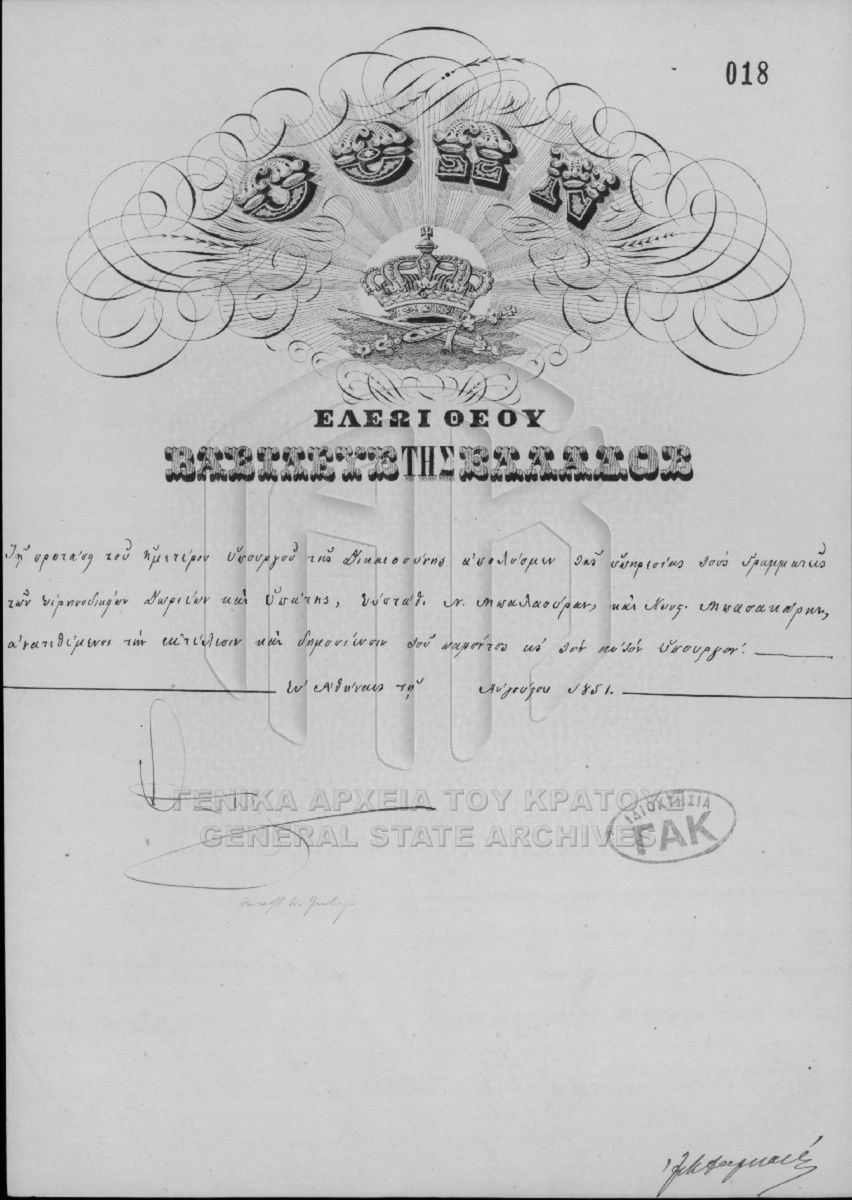 018
ΟΘΩΝ
ΕΛΕΩΙ ΘΕΟΥ
ΒΑΣΙΛΕΥΣ ΤΗΣ ΕΛΛΑΔΟΣ
Τῇ προτάσει τοῦ ἡμετέρου Ὑπουργοῦ τῆς Δικαιοσύνης ἀπολύομεν τῆς ὑπηρεσίας τοὺς Γραμματεῖς
τῶν εἰρηνοδικείων Δωριέων καὶ Ὑπάτης, Εὐστάθ. Ν. Μπαλαούραν, καὶ Μπασακάρην,
ἀνατιθέμενοι τὴν ἐκτέλεσιν καὶ δημοσίευσιν τοῦ παρόντος εἰς τὸν αὐτὸν Ὑπουργόν.
Ἐν Ἀθήναις τῇ Αὐγούστου 1851.
ΓΕΝΙΚΑ ΑΡΧΕΙΑ ΤΟΥ ΚΡΑΤΟΥΣ
GENERAL STATE ARCHIVES
ΙΔΙΟΚΤΗΣΙΑ
ΓΑΚ